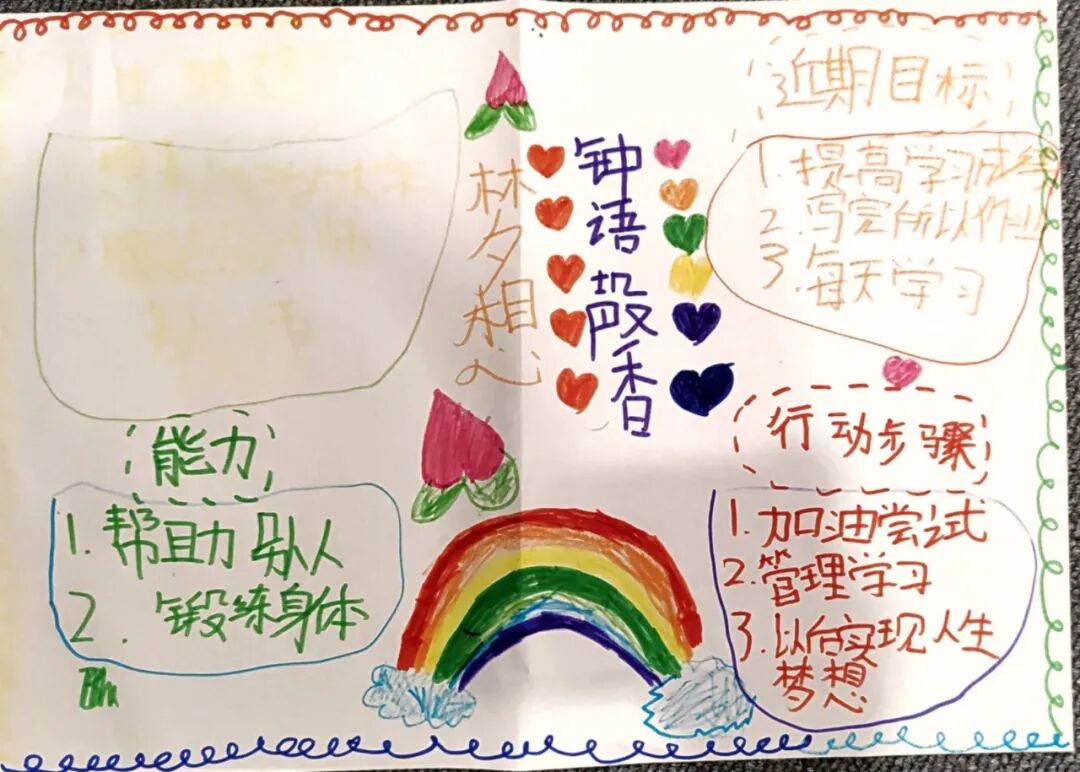 梦想
钟语
香
近期目标
1. 提高学习成绩
2. 写完所以作业
3. 每天学习
能力
1. 帮助别人
2. 锻练身体
行动步骤
1. 加油尝试
2. 管理学习
3. 以后实现人生
梦想